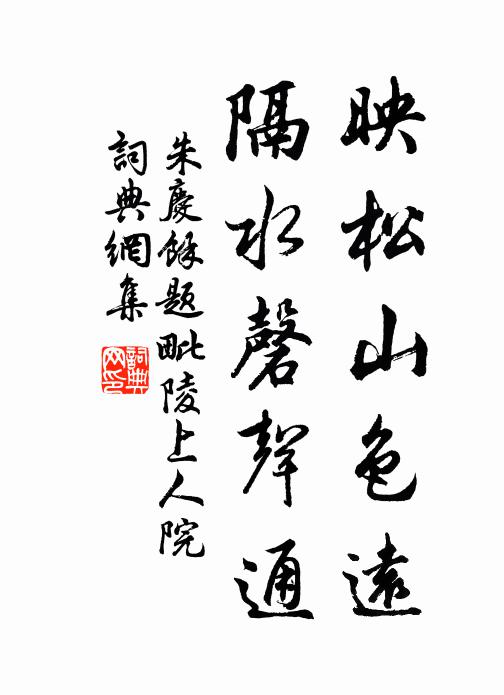 映松山色遠
隔水磬聲通
朱慶餘題毗陵上人院
詞典網集
詞典網印